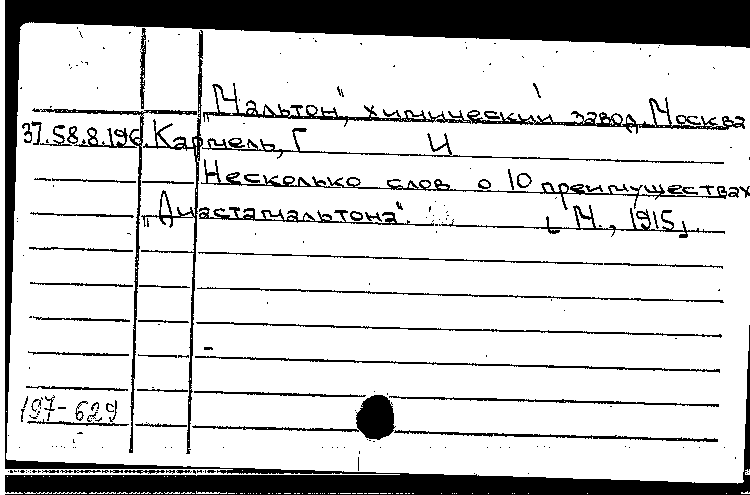 „Мальтон", химический завод. Москва
37.58.8.196. Кармель, Г И
Несколько слов о 10 преимуществах
„Диастамальтона". [М., 1915].
197-629